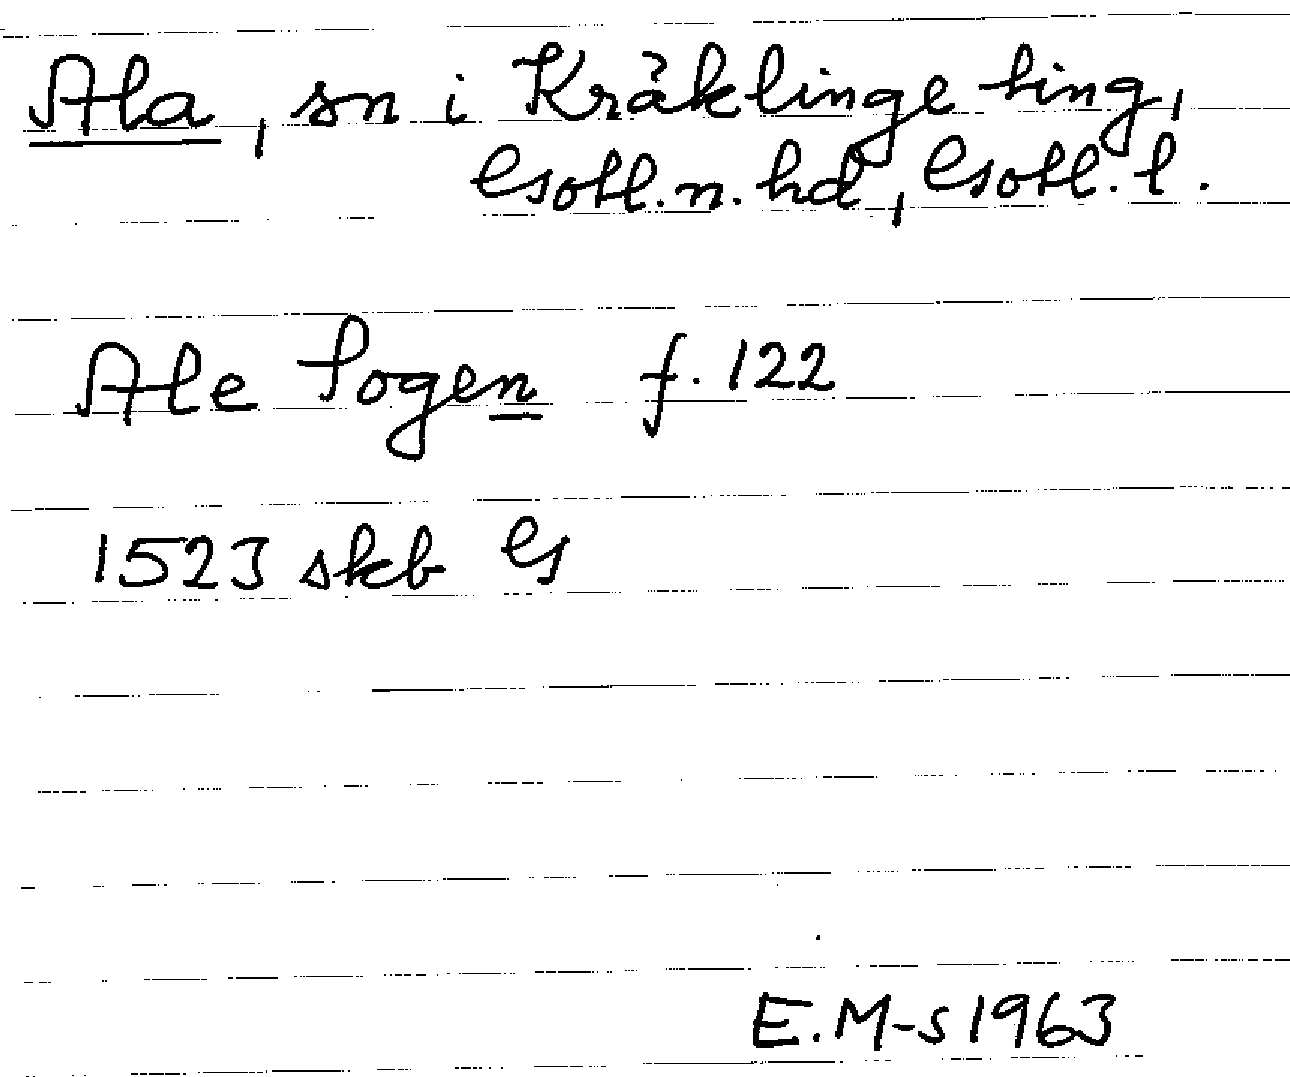 Ala, sn i Kräklinge ting,
Gotl. n. hd, Gotl. l.
Ale Sogen f. 122
1523 skb G
E.M-s 1963